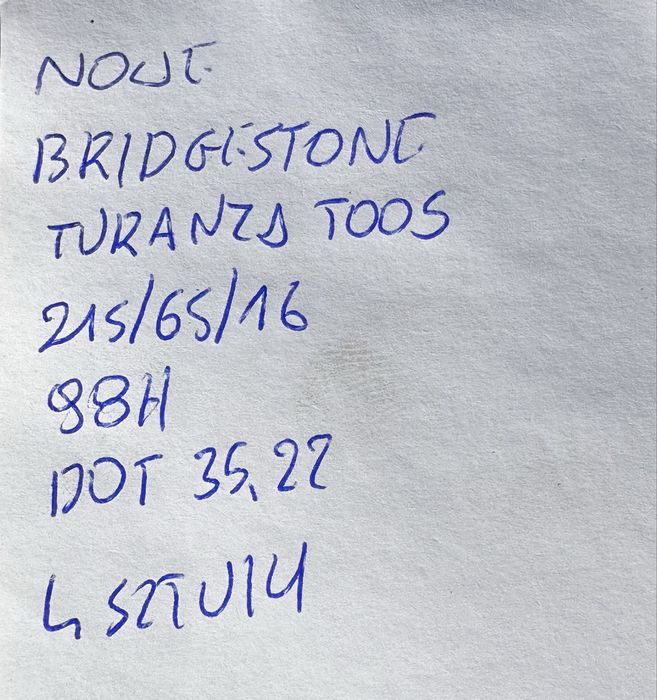 NOWE
BRIDGESTONE
TURANZA T005
215/65/16
98H
DOT 35,22
4 SZTUKI